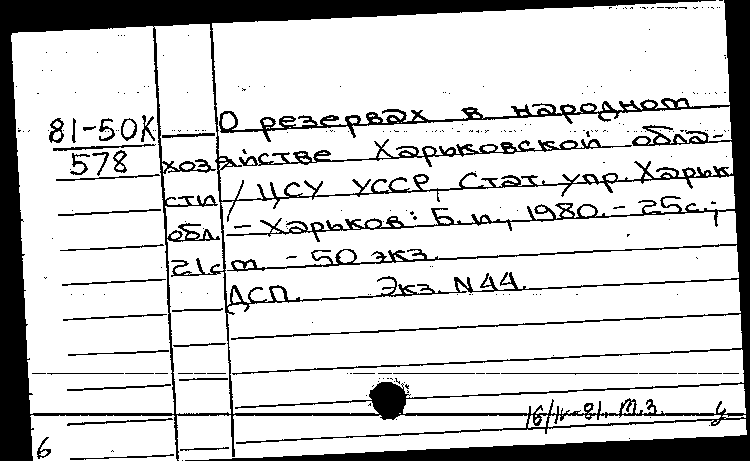 81-50К О резервах в народном
578 хозяйстве Харьковской обла-
сти / ЦСУ УССР, Стат. упр. Харьк.
обл. - Харьков: Б.и., 1980. - 25с.;
21см. - 50 экз.
ДСП. Экз. N44.
16/IV-81. т.з. у
6